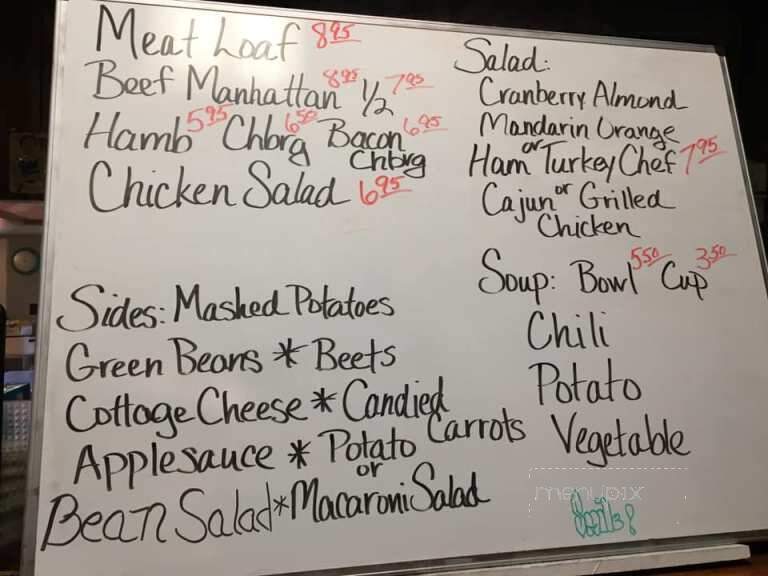 Meat Loaf 8.95
Beef Manhattan 8.95 1/2 7.95
Hamb 5.95 Chbrg 6.50 Bacon Chbrg 6.95
Chicken Salad 6.95
Sides: Mashed Potatoes
Green Beans * Beets
Cottage Cheese * Candied Carrots
Applesauce * Potato or
Bean Salad * Macaroni Salad
Salad:
Cranberry Almond
Mandarin Orange
Ham or Turkey Chef 7.95
Cajun or Grilled
Chicken
Soup: Bowl 5.50 Cup 3.50
Chili
Potato
Vegetable
menupix